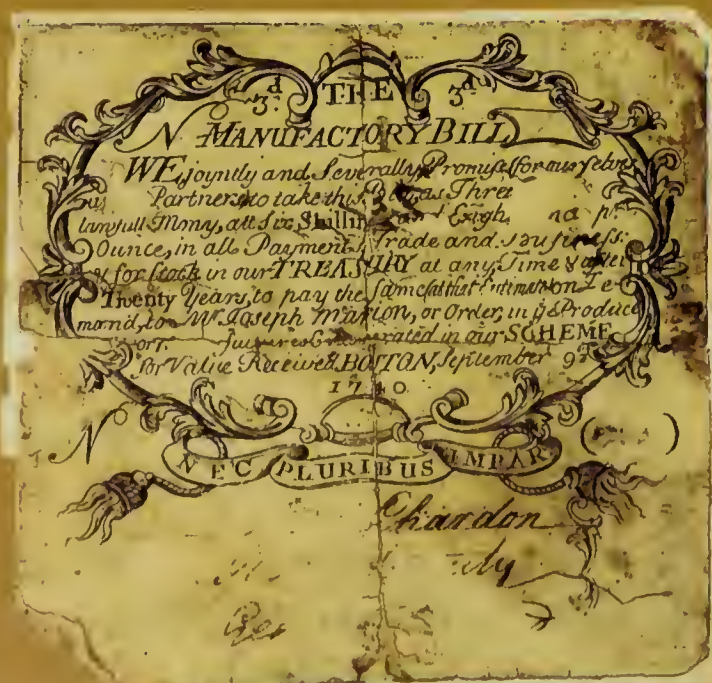 3d. THE 3d.
N MANUFACTORY BILL
WE, joyntly and Severally Promise (for ourselves
Partners) to take this as Three
lawfull Mony, att Six Shillin and Eigh
Ounce, in all Payments, Trade and Business:
& for Stock in our TREASURY at any Time & after
Twenty Years, to pay the same (att that Estimation
mand, to Mr. Joseph Marion, or Order, in ye Produce
or in our SCHEME
for Value Received. BOSTON, September 9
1740
N ( )
NEC PLURIBUS IMPAR
Chardon